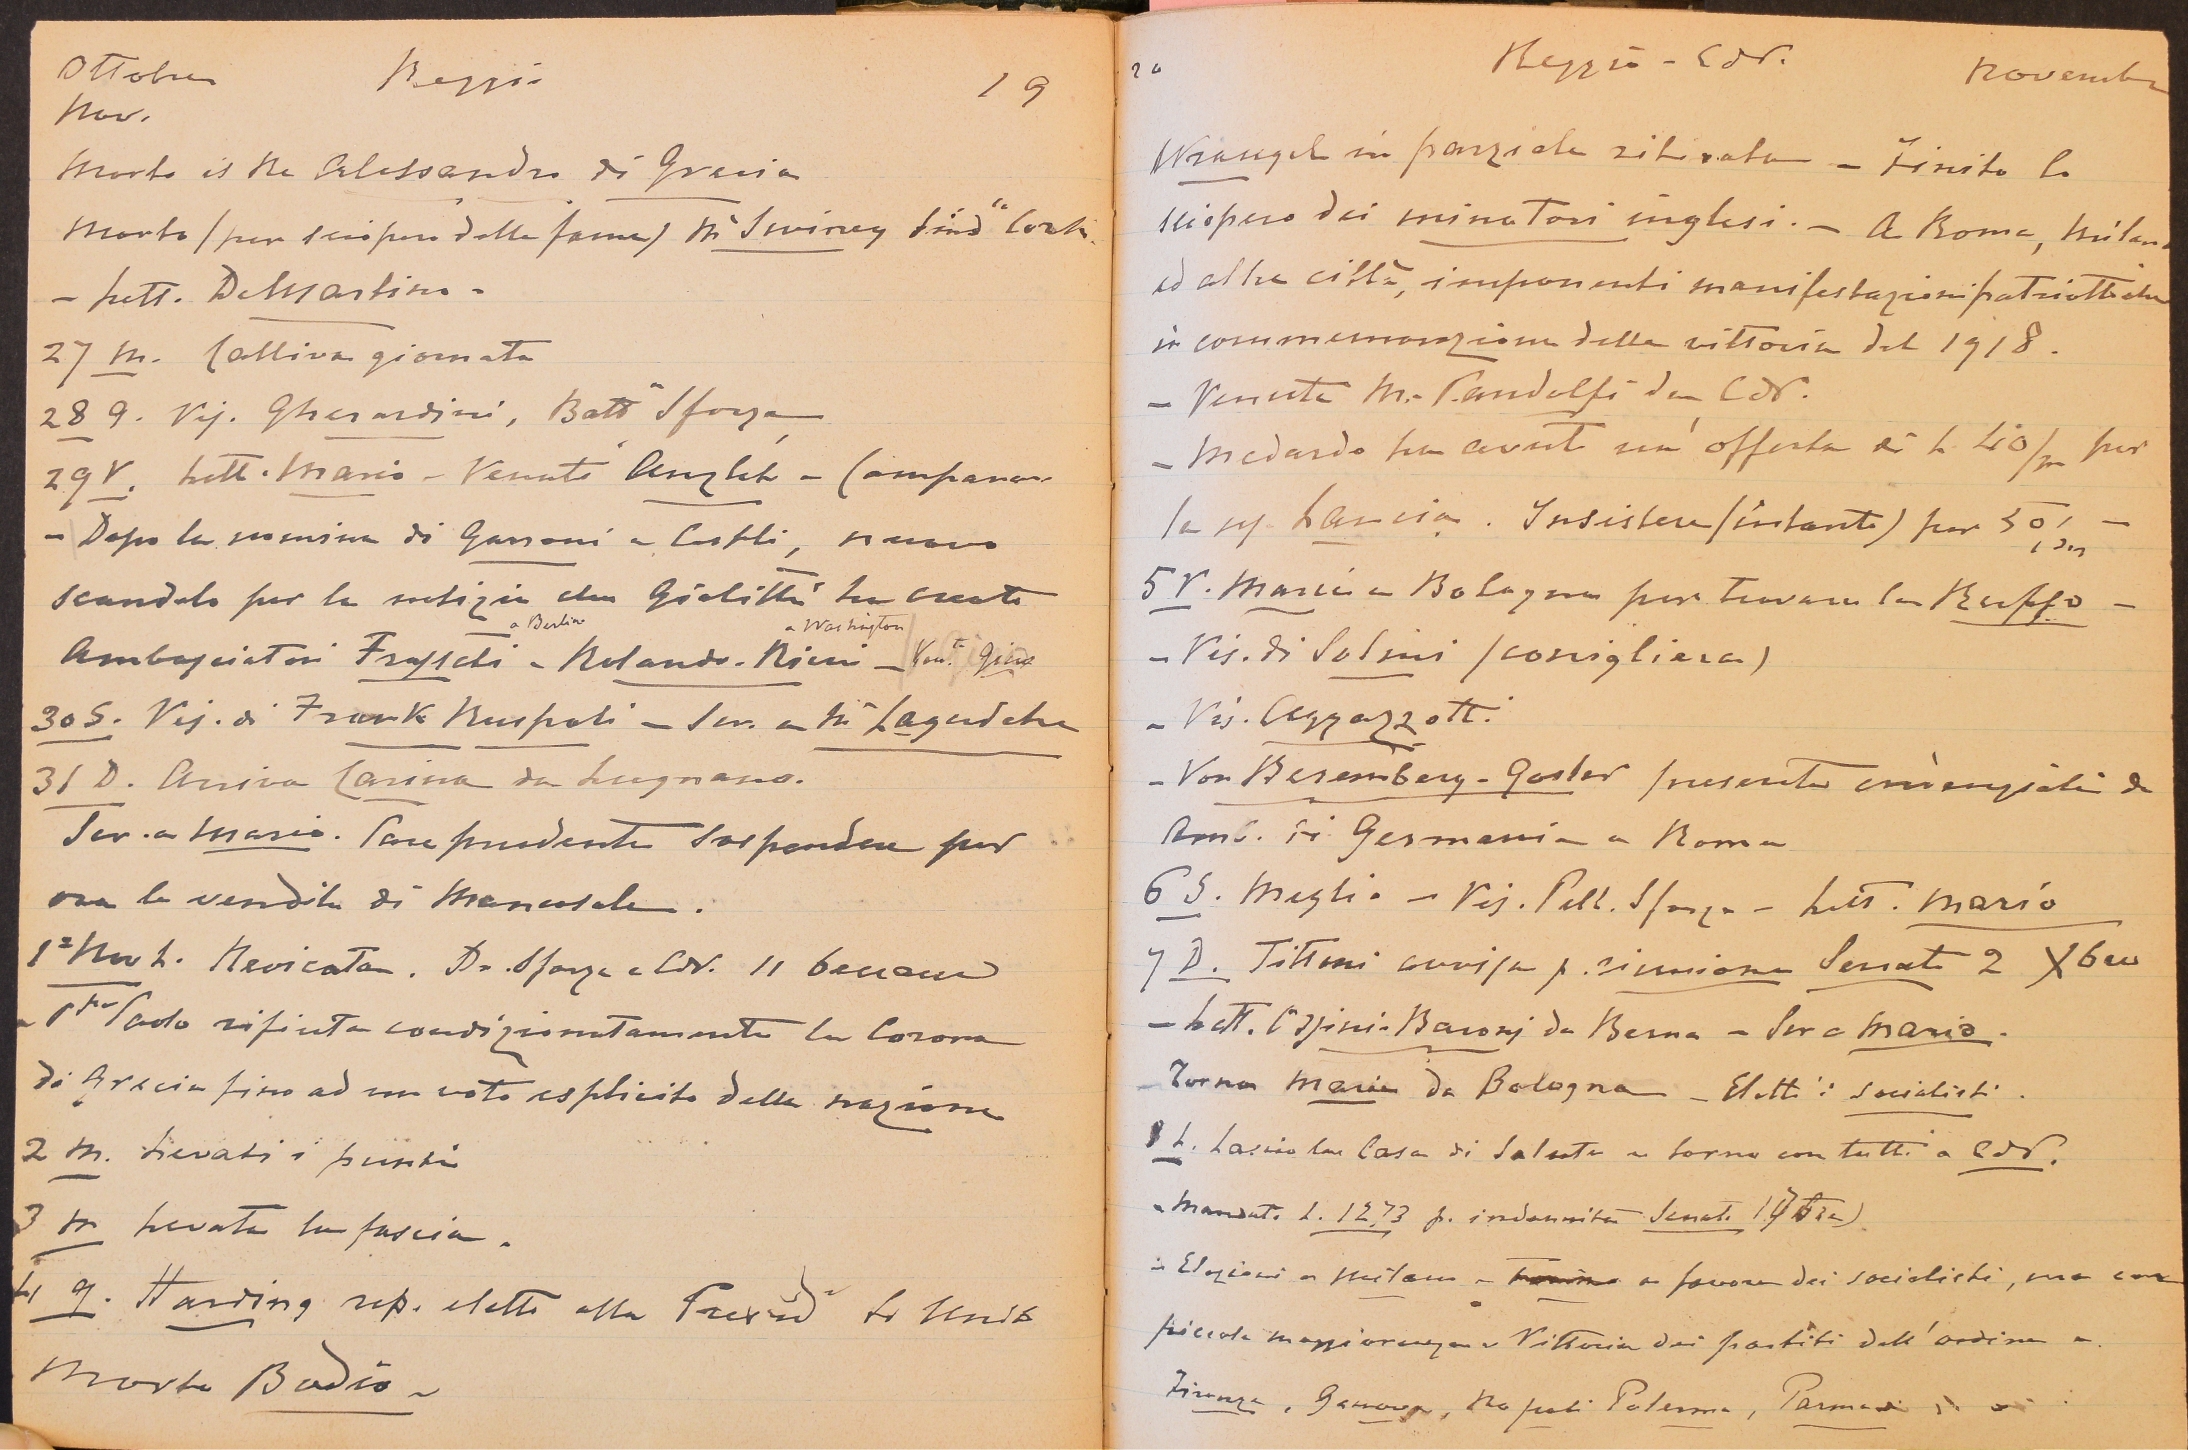 Ottobre Reggio 19
Nov.
Morto il Re Alessandro di Grecia
Morto (per sciopero della fame) Mc Swiney Sind.co Cork.
- Lett. DeMartino -
27 M. Cattiva giornata
28 G. Vis. Gherardini, Batt. Sforza
29 V. Lett. Mario - Venuti Anzleh - Campana
- Dopo la nomina di Garroni a Costpli, nuovo
scandalo per la notizia che Giolitti ha creato
a Berlino a Washington
Ambasciatori Frassati - Rolando-Ricci - Ven. Gina
30 S. Vis. di Frank Ruspoli - Scr. a Mc Lagudche
31 D. Arriva Carina da Lugnano.
Scr. a Mario. Pare prudente sospendere per
ora la vendita di Mancasale.
1° Nov L. Nevicata. Da Sforza a CdV. 11 beccacce
- P.pe Paolo rifiuta condizionatamente la Corona
di Grecia fino ad un voto esplicito della nazione
2 M. Levati i punti
3 M Levata la fascia.
4 G. Harding rep. eletto alla Presid.a St Uniti
Morto Bodio -
20 Reggio - CdV. Novembre
Wrangel in parziale ritirata - Finito lo
sciopero dei minatori inglesi. - A Roma, Milano
ed altre città, imponenti manifestazioni patriottiche
in commemorazione della vittoria del 1918.
- Venuta M. Pandolfi da CdV.
- Medardo ha avuto un'offerta di L 40/m per
la sua Lancia. Insistere (intanto) per 50/m -
5 V. Maria a Bologna per trovare la Ruffo -
- Vis. di Solmi (consigliera)
- Vis. Aggazzotti
- Von Beremberg-Gosler presenta credenziali da
Amb. di Germania a Roma
6 S. Meglio - Vis. Pell. Sforza - Lett. Mario
7 D. Tittoni avvisa p. riunione Senato 2 Xbre
- Lett. Orsini-Baroni da Berna - Scr a Mario.
- Torna Maria da Bologna - Eletti i socialisti.
8 L. Lascio la Casa di Salute e torno con tutti a CdV.
- Mandato L. 1273 p. indennità Senato
- Elezioni a Milano - a favore dei socialisti, ma con
piccola maggioranza - Vittoria dei partiti dell'ordine a
Firenze, Genova, Napoli Palermo, Parma